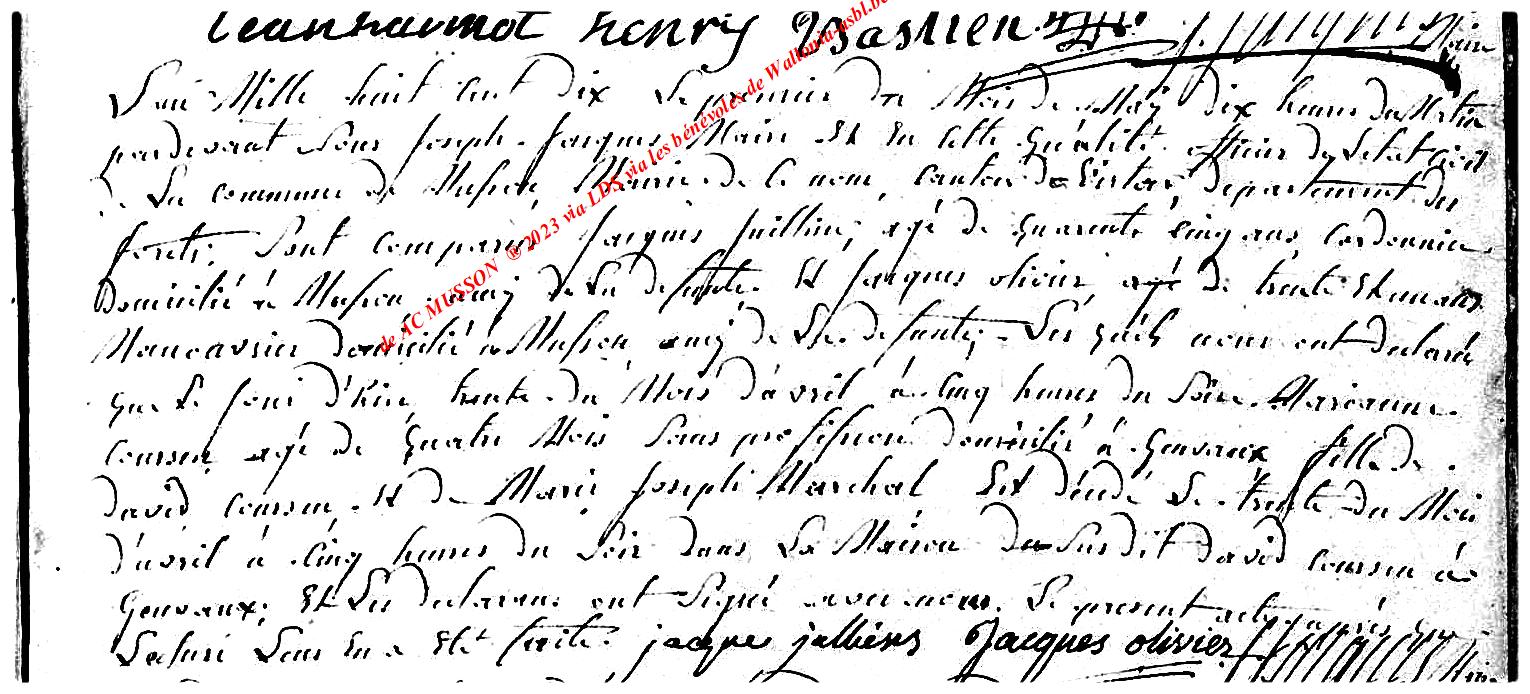 Jeanhaumot henry Bastien Maire
L'an Mille huit Cent dix Le premier du Mois de May dix heures du Matin
pardevant Nous Joseph Jacques Maire Et En Cette quálité officier De Letat Civil
de La commune de Musson, Mairie de Ce nom, Canton de Virton, departement des
forets; Sont comparus Jacques Juillien, agé de quarente Cinq ans, Cordonnier
Domicilié à Musson amy de La defunte Et Jacques olivier agé de trente Et un ans
Manoeuvrier domicilié à Musson amy de La defunte; Les quels nous ont declaré
que Le jour d'hier, trente du Mois d'avril à Cinq heures du Soir Marianne
Coursin agé de Quatre Mois Sans profession domicilié à Genvaux fille de
david Coursin Et de Marie Joseph Marchal Est décédé Le trente du Mois
d'avril à Cinq heures du Soir dans La Maison du Susdit david Coursin à
Genvaux; Et Les declarans ont Signé avec nous. Le present acte après
Lecture Leur En a Eté faite. jacque jullien Jacques olivier
de AC MUSSON ® 2023 via LDS via les bénévoles de Wallonia-asbl.be